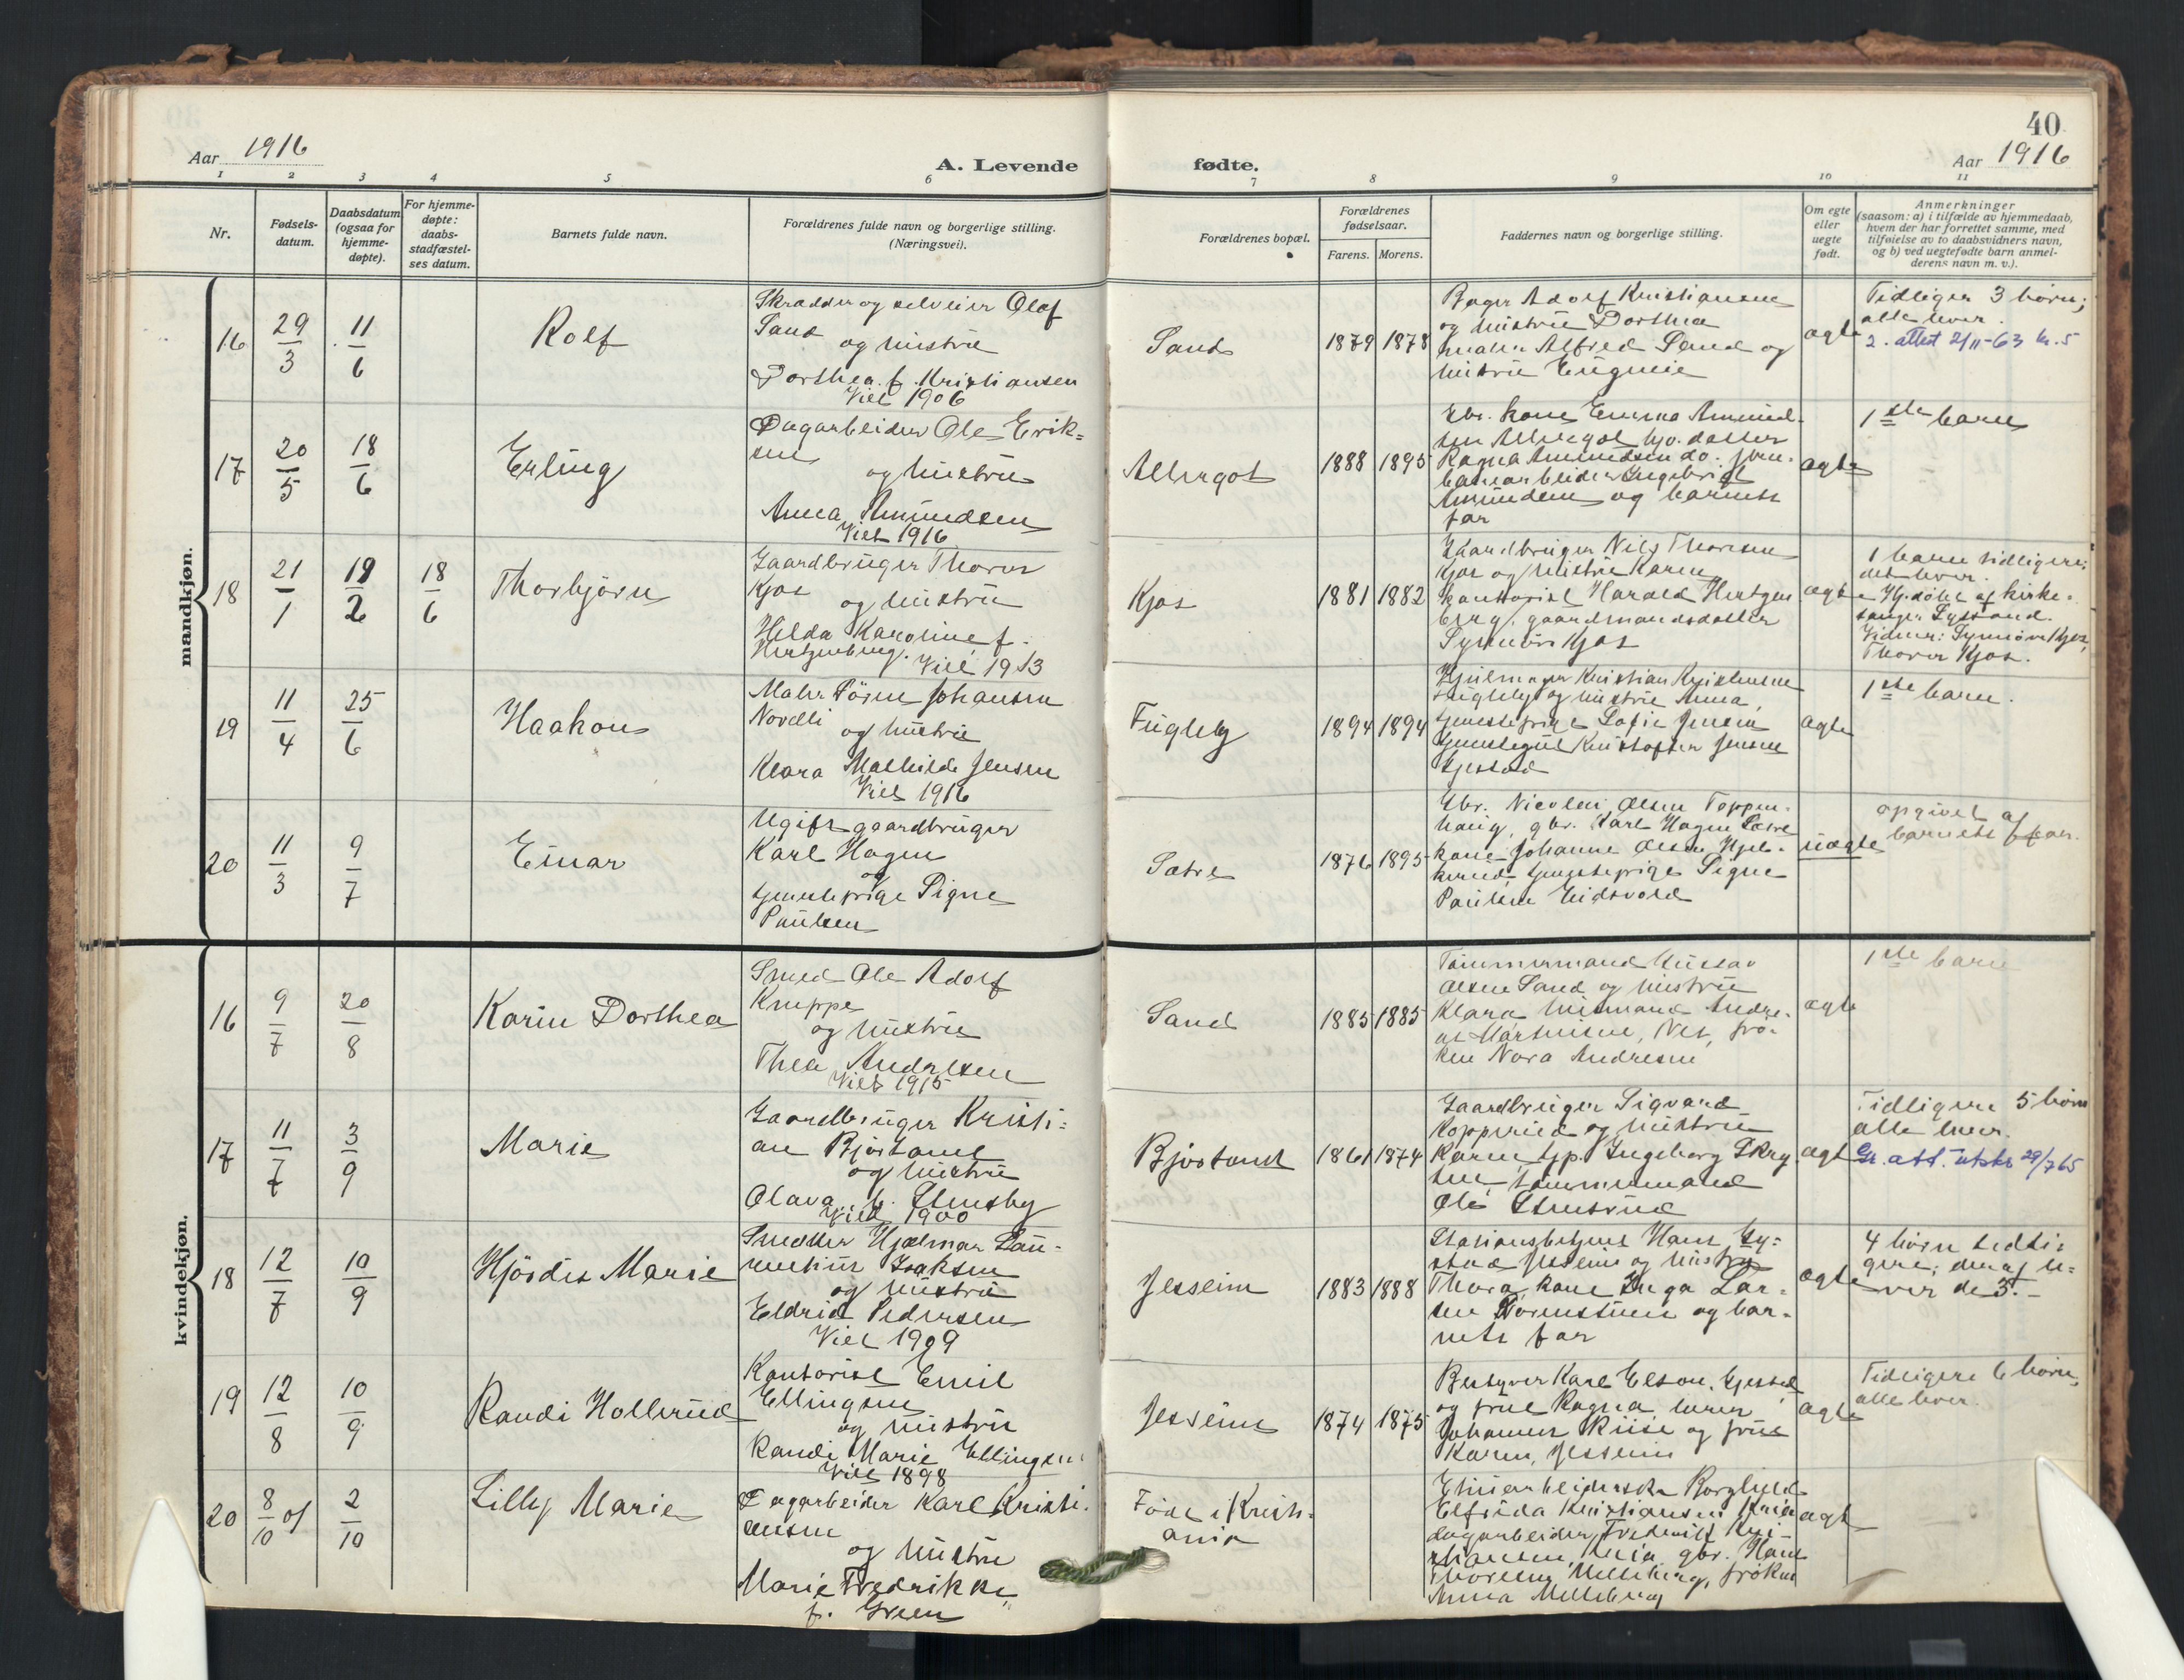 40
Aar 1916
A. Levende
fødte.
Aar 1916
1 2 3 4 5 6 7 8 9 10 11
Nr.
Fødsels-
datum.
Daabsdatum
(ogsaa for
hjemme-
døpte).
For hjemme-
døpte:
daabs-
stadfæstel-
ses datum.
Barnets fulde navn.
Forældrenes fulde navn og borgerlige stilling.
(Næringsvei).
Forældrenes bopæl.
Forældrenes
fødselsaar.
Farens. Morens.
Faddernes navn og borgerlige stilling.
Om egte
eller
uegte
født.
Anmerkninger
(saasom: a) i tilfælde av hjemmedaab,
hvem der har forrettet samme, med
tilføielse av to daabsvidners navn,
og b) ved uegtefødte barn anmel-
derens navn m. v.).
mandkjøn.
16
29/3
11/6
Rolf
Skrædder og selveier Olaf
Sand
og hustru
Dorthea f. Kristiansen
Viet 1906
Sand
1879 1878
Bager Adolf Kristiansen
og hustru Dorthea
maler Alfred Sand og
hustru Eugenie
ægte
Tidligere 3 børn;
alle lever.
2. attest 2/11-63 kr. 5
17
20/5
18/6
Erling
Dagarbeider Ole Erik-
sen
og hustru
Anna Amundsen
Viet 1916
Algergot
1888 1895
Gbr. kone Emma Amund-
sen Algergot hjv. datter
Ragna Amundsen do. jern-
banearbeider Ingebrigt
Amundsen og barnets
far
ægte
1ste barn
18
21/1
19/2
18/6
Thorbjørn
Gaardbruger Thorer
Kjos
og hustru
Hilda Karoline f.
Hertzenberg. Viet 1913
Kjos
1881 1882
Gaardbruger Nils Thoresen
Kjos og hustru Karen,
kontorist Harald Hertzen
berg, gaardmandsdatter
Synnøve Kjos
ægte
1 barn tidligere;
det lever.
Hj.døbt af kirke-
sanger Systad.
Vidner: Synnøve Kjos,
Thorer Kjos.
19
11/4
25/6
Haakon
Maler Søren Johansen
Novelli
og hustru
Klara Mathilde Jensen
Viet 1916
Fugleby
1894 1894
Hjulmager Kristian Kristensen
Fugleby og hustru Anna,
tjenestepige Sofie Jensen
tjenestegut Kristoffer Jensen
Gjestad
ægte
1ste barn.
20
11/3
9/7
Einar
Ugift gaardbruger
Karl Hagen
og
tjenestepige Signe
Paulsen
Sætre
1876 1895
Gbr. Nicolai Olsen Toppen-
haug, gbr. Karl Hagen Sætre
kone Johanne Olsen
tjenestepige Signe
Paulsen Eidsvold
uægte
opgivet af
barnets far.
kvindekjøn.
16
9/7
20/8
Karin Dorthea
Smed Ole Adolf
Kruppe
og hustru
Thea Andresen
Viet 1915
Sand
1885 1885
Tømmermand Gustav
Olsen Sand og hustru
Klara husmand Andre-
as Martinsen, Nes, frø-
ken Nora Andresen
ægte
1ste barn
17
11/7
3/9
Marie
Gaardbruger Kristi-
an Bjørstand
og hustru
Olava f. Stensby
Viet 1900
Bjørstand
1861 1874
Gaardbruger Sigvard
Kopperud og hustru
Karen, tjp. Ingeborg
tømmermand
Ole Stensrud
ægte
Tidligere 5 børn
alle lever.
Gr. att. utskr 29/7 65
18
12/7
10/9
Hjørdis Marie
Smedm. Hjalmar Lau-
rentius Isaksen
og hustru
Eldrid Pedersen
Viet 1909
Jessheim
1883 1888
Stationsbetjent Hans Sy-
stad Jessheim og hustru
Thora, kone Inga Lar-
sen og bar-
nets far
ægte
4 børn tidli-
gere; deraf le-
ver de 3.
19
12/8
10/9
Randi Hollerud
Kontorist Emil
Ellingsen
og hustru
Randi Marie Ellingsen
Viet 1898
Jessheim
1874 1875
Bestyrer Karl Elson, Gjestad
og frue Ragna, lærer
Johannes Riise og frue
Karen, Jessheim
ægte
Tidligere 6 børn,
alle lever.
20
8/10 of
2/10
Lilly Marie
Dagarbeider Karl Kristi-
ansen
og hustru
Marie Fredrikke,
f. Green
Født i Kristi-
ania
Elfrida Kristiansen Kria
dagarbeider Frederik Kri-
stiansen, Kria, gbr. Hans
Thoresen Melleberg, frøken
Anna Melleberg
ægte